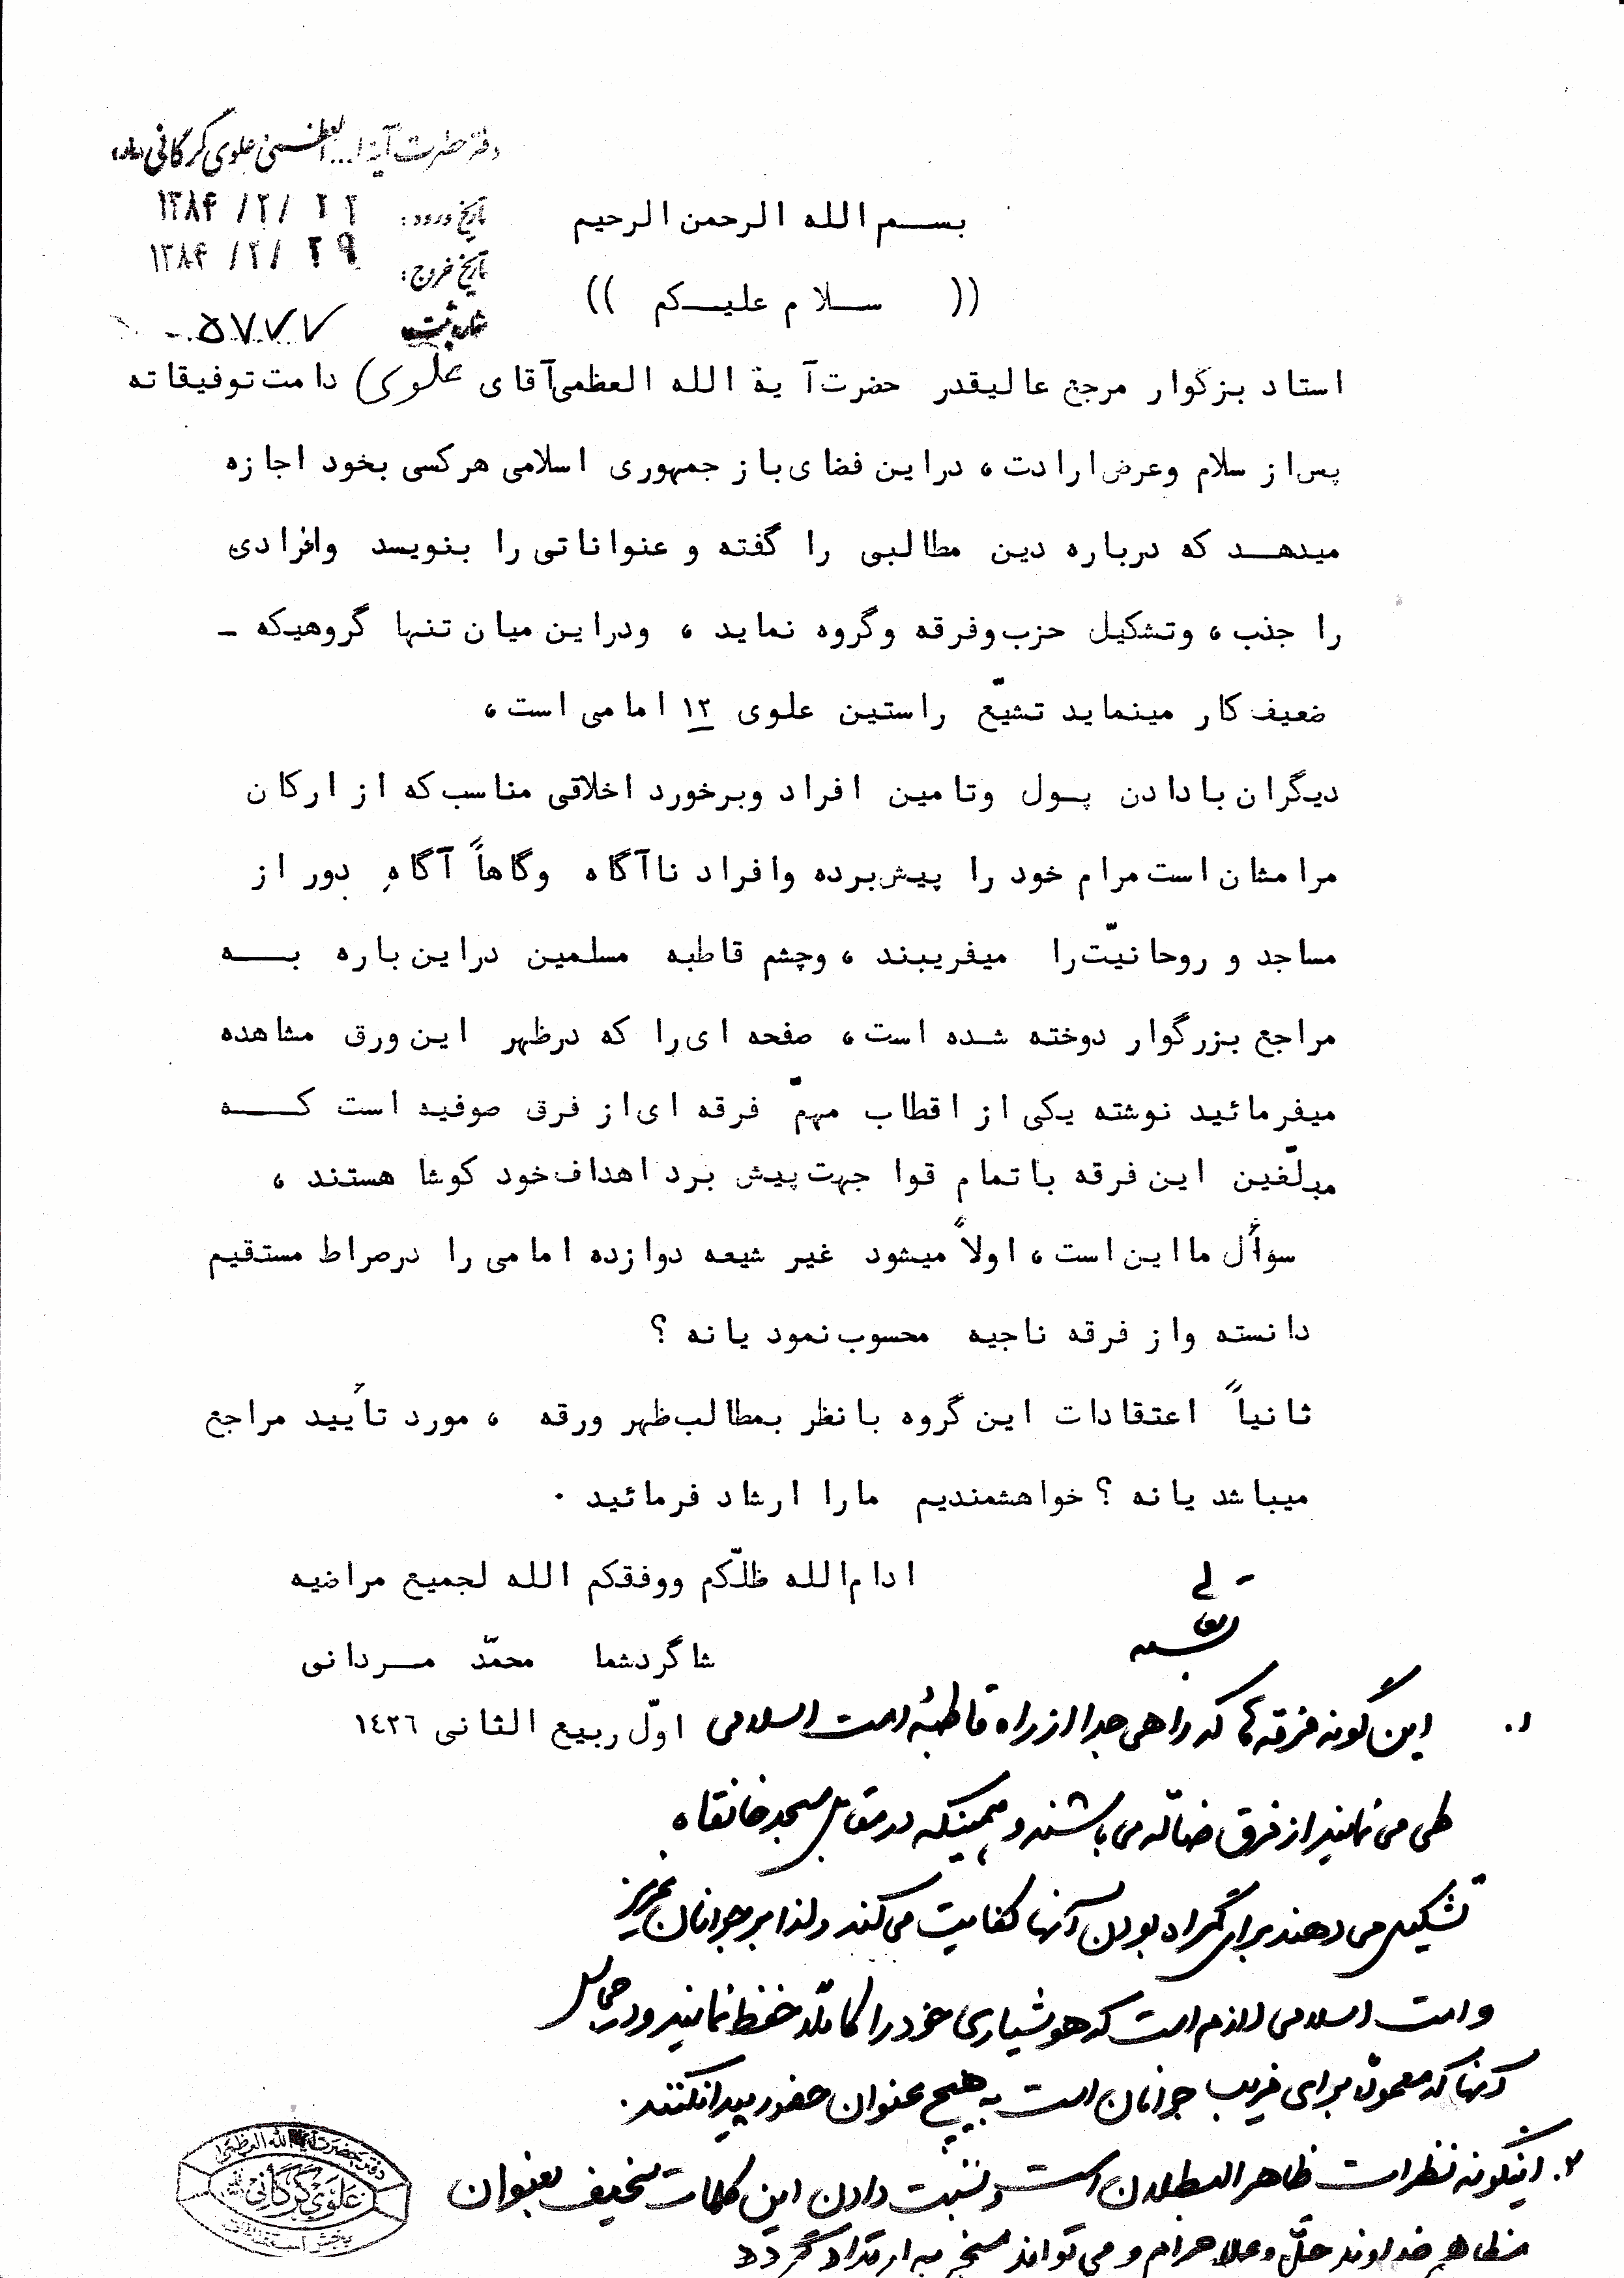 دفتر حضرت آیة ا... العظمی علوی گرگانی
تاریخ ورود: ۱۳۸۴/۲/۲۲
تاریخ خروج: ۱۳۸۴/۲/۲۹
شماره ثبت ۵۷۷۷
بسم الله الرحمن الرحیم
(( سلام علیکم ))
استاد بزگوار مرجع عالیقدر حضرت آیة الله العظمی آقای علوی دامت توفیقاته
پس از سلام وعرض ارادت، دراین فضای باز جمهوری اسلامی هرکسی بخود اجازه
میدهد که درباره دین مطالبی را گفته و عنواناتی را بنویسد وافرادی
را جذب، وتشکیل حزب وفرقه وگروه نماید، ودراین میان تنها گروهیکه -
ضعیف کار مینماید تشیّع راستین علوی ۱۲ امامی است،
دیگران بادادن پول وتامین افراد وبرخورد اخلاقی مناسب که از ارکان
مرامشان است مرام خود را پیش برده وافراد ناآگاه وگاهاً آگاه دور از
مساجد و روحانیّت را میفریبند، وچشم قاطبه مسلمین دراین باره به
مراجع بزرگوار دوخته شده است، صفحه ای را که درظهر این ورق مشاهده
میفرمائید نوشته یکی از اقطاب مهمّ فرقه ای از فرق صوفیه است که
مبلّغین این فرقه باتمام قوا جهت پیش برد اهداف خود کوشا هستند،
سوأل مااین است، اولاً میشود غیر شیعه دوازده امامی را درصراط مستقیم
دانسته واز فرقه ناجیه محسوب نمود یا نه؟
ثانیاً اعتقادات این گروه بانظر بمطالب ظهر ورقه، مورد تأیید مراجع
میباشد یا نه؟ خواهشمندیم مارا ارشاد فرمائید.
ادام الله ظلّکم ووفقکم الله لجمیع مراضیه
شاگردشما محمّد مردانی
اوّل ربیع الثانی ١٤٢٦
۱. این گونه فرقه ها که راهی جدا از راه قاطبهٔ امت اسلامی
طی می نمایند از فرق ضالّه می باشند و همینکه در مقابل مسجد خانقاه
تشکیل می دهند برای گمراه بودن آنها کفایت می کند ولذا بر جوانان عزیز
و امت اسلامی لازم است که هوشیاری خود را کاملاً حفظ نمایند و در محافل
آنها که معمولاً برای فریب جوانان است به هیچ عنوان حضور پیدا نکنند.
۲. اینگونه نظرات ظاهر البطلان است و نسبت دادن این کلمات سخیف بعنوان
مظاهر خداوند جلّ و علا حرام و می تواند منجر به ارتداد گردد
دفتر حضرت آیة الله العظمی
علوی گرگانی
بخش استفتاءات